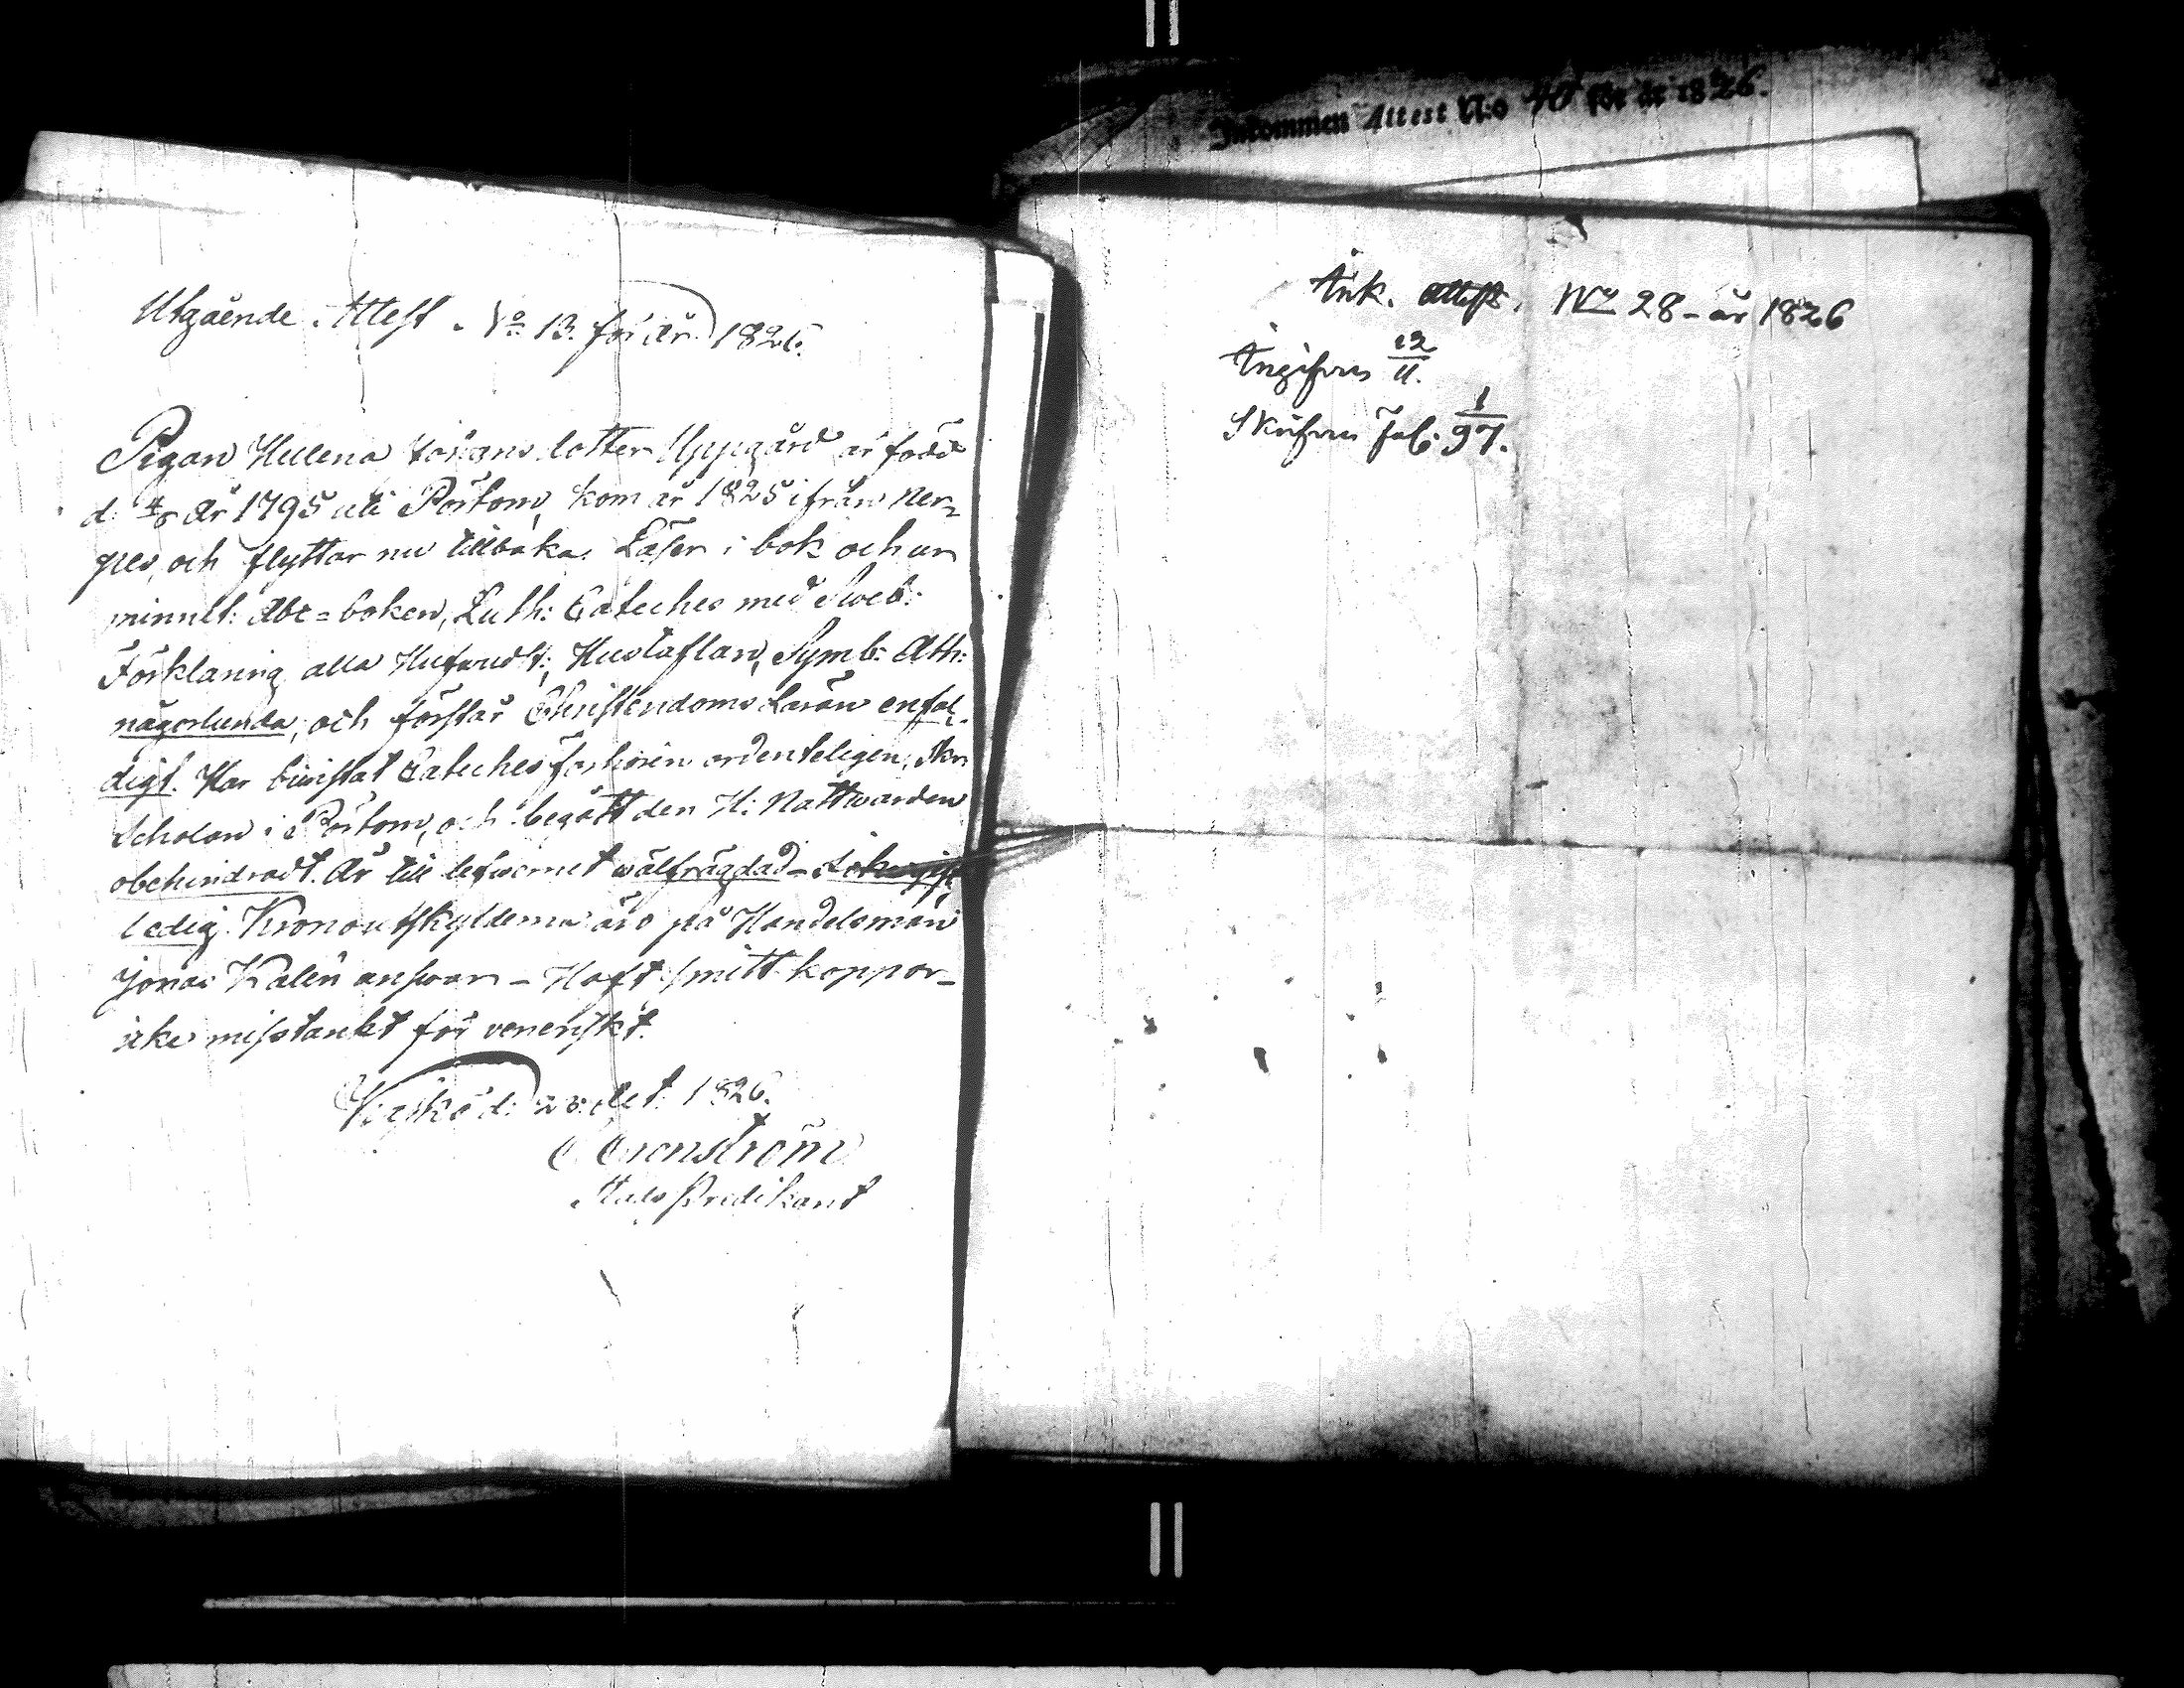 Utgående Attest No 13. för år 1826.
Pigan Helena Görans dotter Uppgård är född
d. 4/8 år 1795 uti Pörtom, kom år 1825 ifrån Ner-
pes, och flyttar nu tillbaka. Läser i bok och ur
minnet: Abc=boken, Luth: Cateches med Sveb:
Förklaring alla Hufvudst:, Hustaflan, Symb: Ath:
någorlunda, och förstår Christendoms Läran enfal-
digt. Har bivistat Catechesförhören ordenteligen, Skr
Scholan i Pörtom, och begått den H: Nattvarden
obehindradt. Är till lefvernet välfrägdad -
ledig. Kronoutskylderna äro på Handelsman
Jonas Kalén ansvar - Haft smitt koppor -
icke misstänkt för veneriskt.
d: Oct: 1826.
Stads Predikant
Inkommen Attest N:o 40 för år 1826.
Ank. attest. No 28 - år 1826
Angifven 12/11.
Skrifven Fol. 1/97.